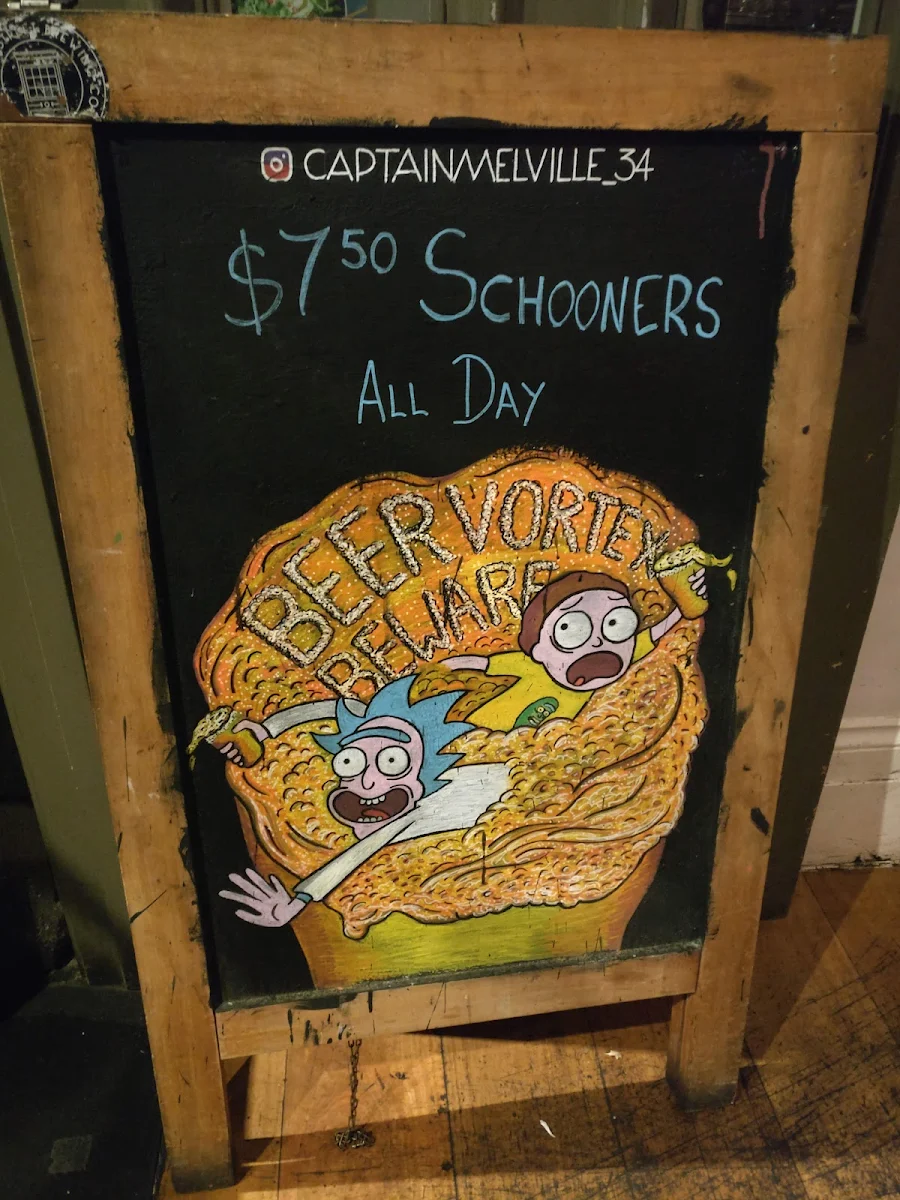 CAPTAINMELVILLE_34
$7⁵⁰ SCHOONERS
ALL DAY
BEER VORTEX
BEWARE